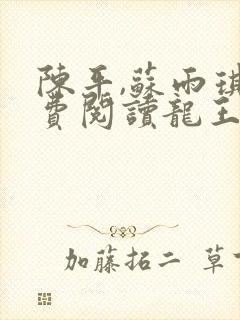 陳平,蘇雨琪
費閱讀龍王
加藤拓二 草